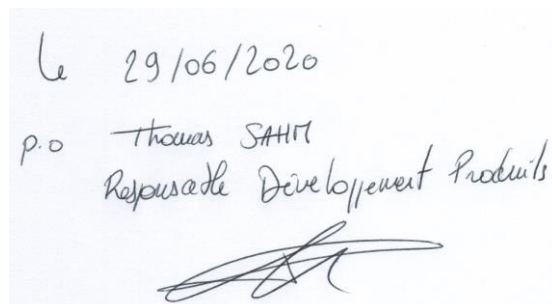 le 29/06/2020
p.o Thomas SAHM
Responsable Développement Produits